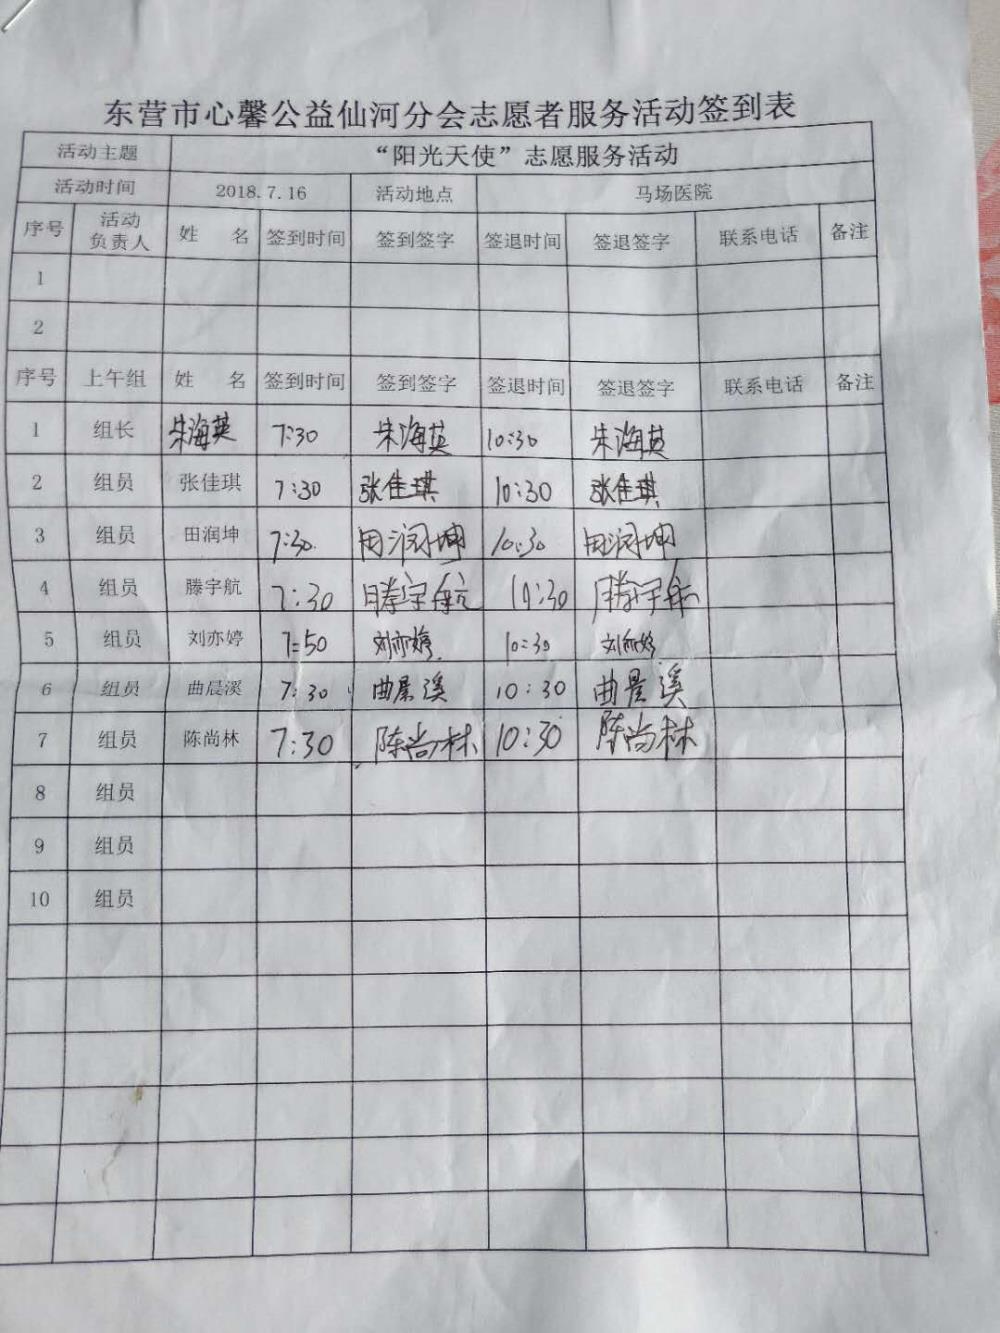 东营市心馨公益仙河分会志愿者服务活动签到表
活动主题 “阳光天使”志愿服务活动
活动时间 2018.7.16 活动地点 马场医院
序号 活动负责人 姓 名 签到时间 签到签字 签退时间 签退签字 联系电话 备注
1
2
序号 上午组 姓 名 签到时间 签到签字 签退时间 签退签字 联系电话 备注
1 组长 朱海英 7:30 朱海英 10:30 朱海英
2 组员 张佳琪 7:30 张佳琪 10:30 张佳琪
3 组员 田润坤 7:30 田润坤 10:30 田润坤
4 组员 滕宇航 7:30 滕宇航 10:30 滕宇航
5 组员 刘亦婷 7:50 刘亦婷 10:30 刘亦婷
6 组员 曲晨溪 7:30 曲晨溪 10:30 曲晨溪
7 组员 陈尚林 7:30 陈尚林 10:30 陈尚林
8 组员
9 组员
10 组员